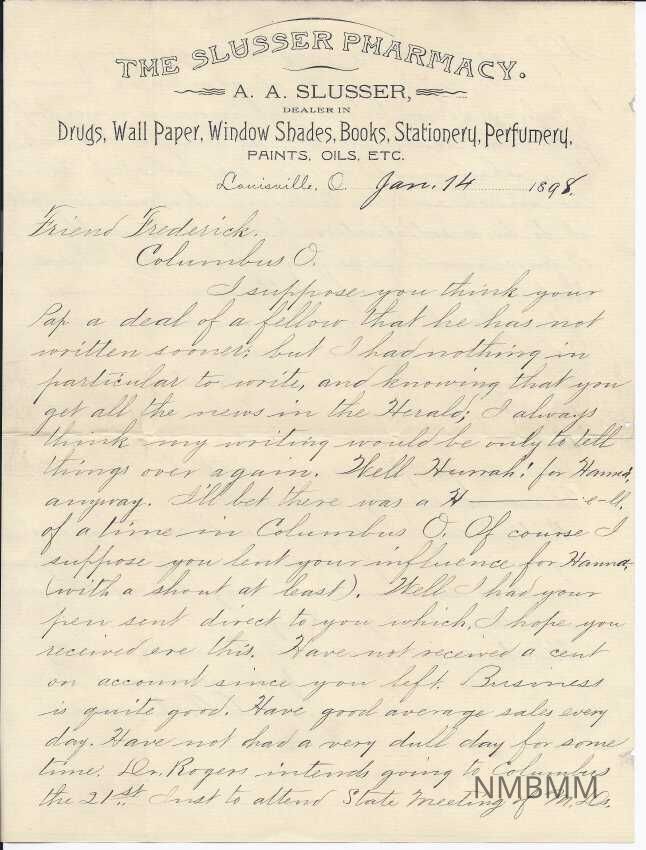 THE SLUSSER PHARMACY.
A. A. SLUSSER,
DEALER IN
Drugs, Wall Paper, Window Shades, Books, Stationery, Perfumery,
PAINTS, OILS, ETC.
Louisville, O. Jan. 14 1898.
Friend Frederick.
Columbus O.
I suppose you think your
Pap a deal of a fellow that he has not
written sooner; but I had nothing in
particular to write, and knowing that you
get all the news in the Herald; I always
think my writing would be only to tell
things over again. Well Hurrah! for Hanna,
anyway. I'll bet there was a H———e-ll,
of a time in Columbus O. Of course I
suppose you lent your influence for Hanna,
(with a shout at least). Well I had your
pen sent direct to you which, I hope you
received ere this. Have not received a cent
on account since you left. Business
is quite good. Have good average sales every
day. Have not had a very dull day for some
time. Dr. Rogers intends going to Columbus
the 21st Inst to attend State Meeting of M.Ds.
NMBMM